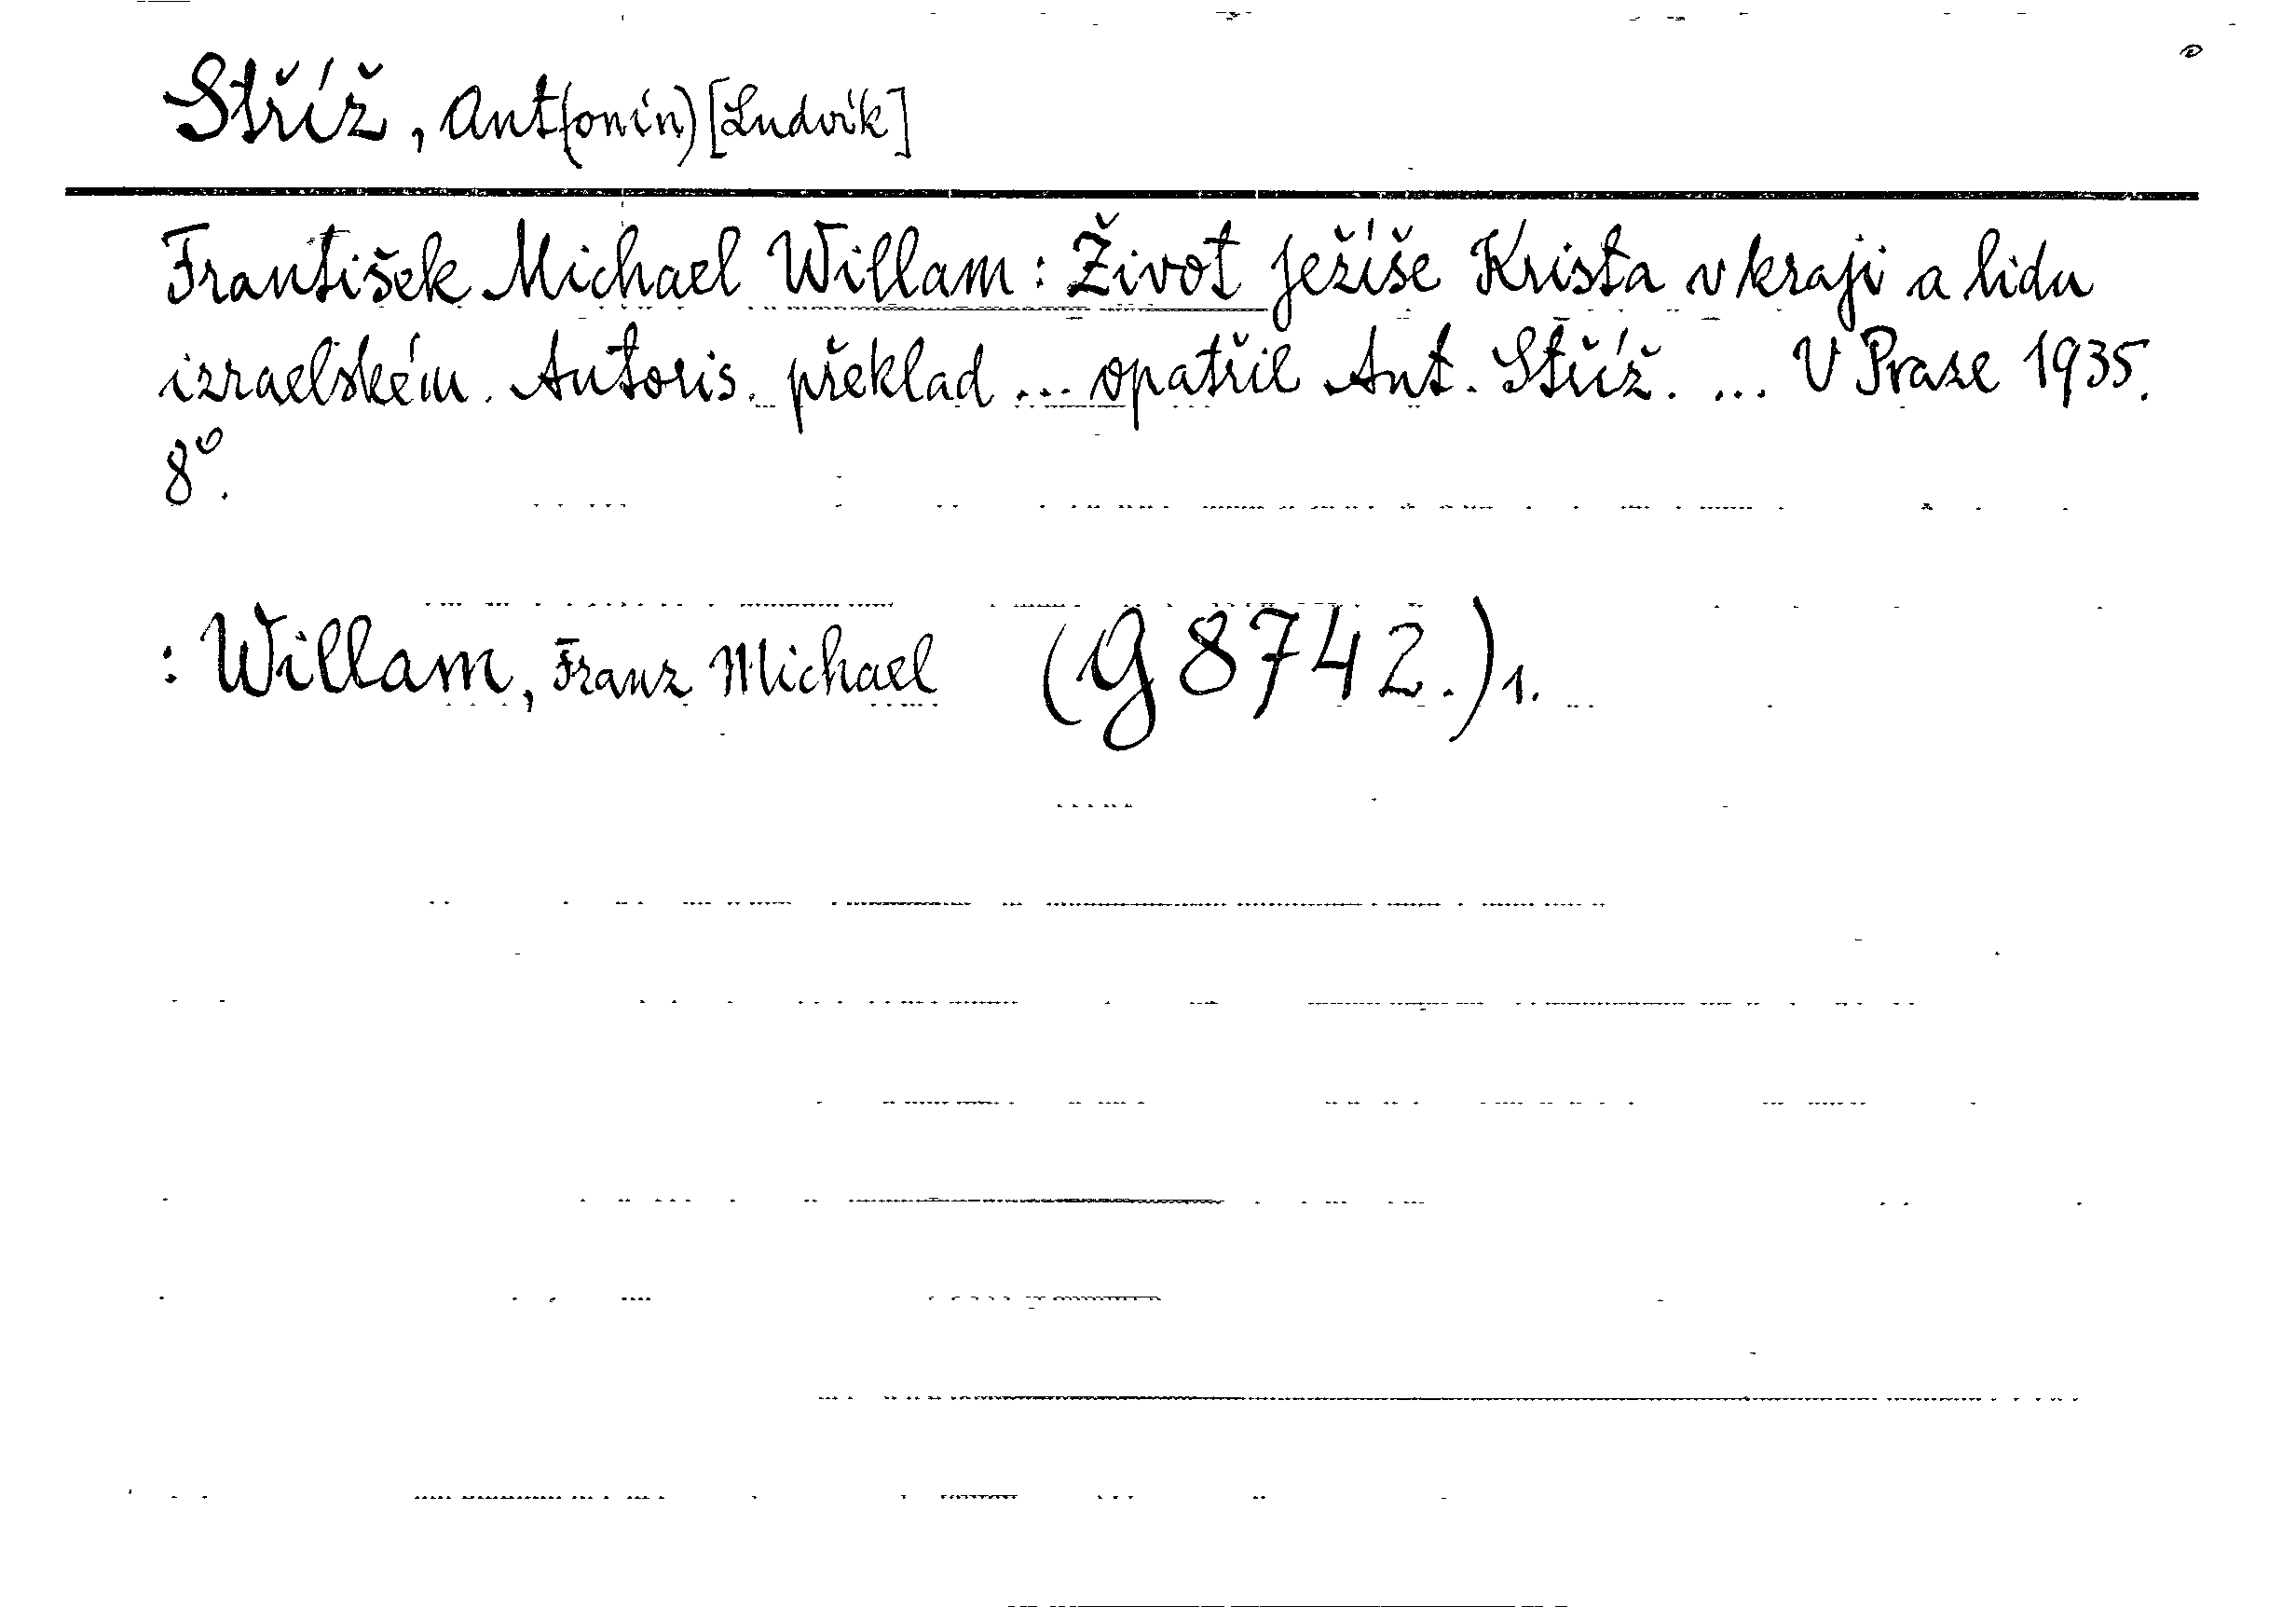 Stříž, Ant(onín) [Ludvík]
František Michael Willam: Život Ježíše Krista v kraji a lidu
izraelském. Autoris. překlad ... opatřil Ant. Stříž. ... V Praze 1935.
8°.
: Willam, Franz Michael (G 8742.) 1.